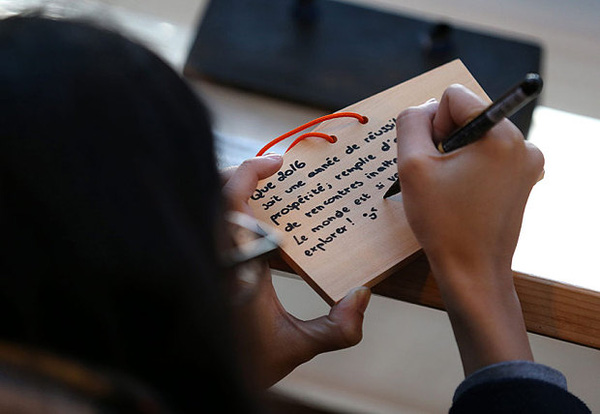 Que 2016
soit une année de réussi
prospérité, remplie d'
de rencontres inatt
Le monde est à vo
explorer ! :)